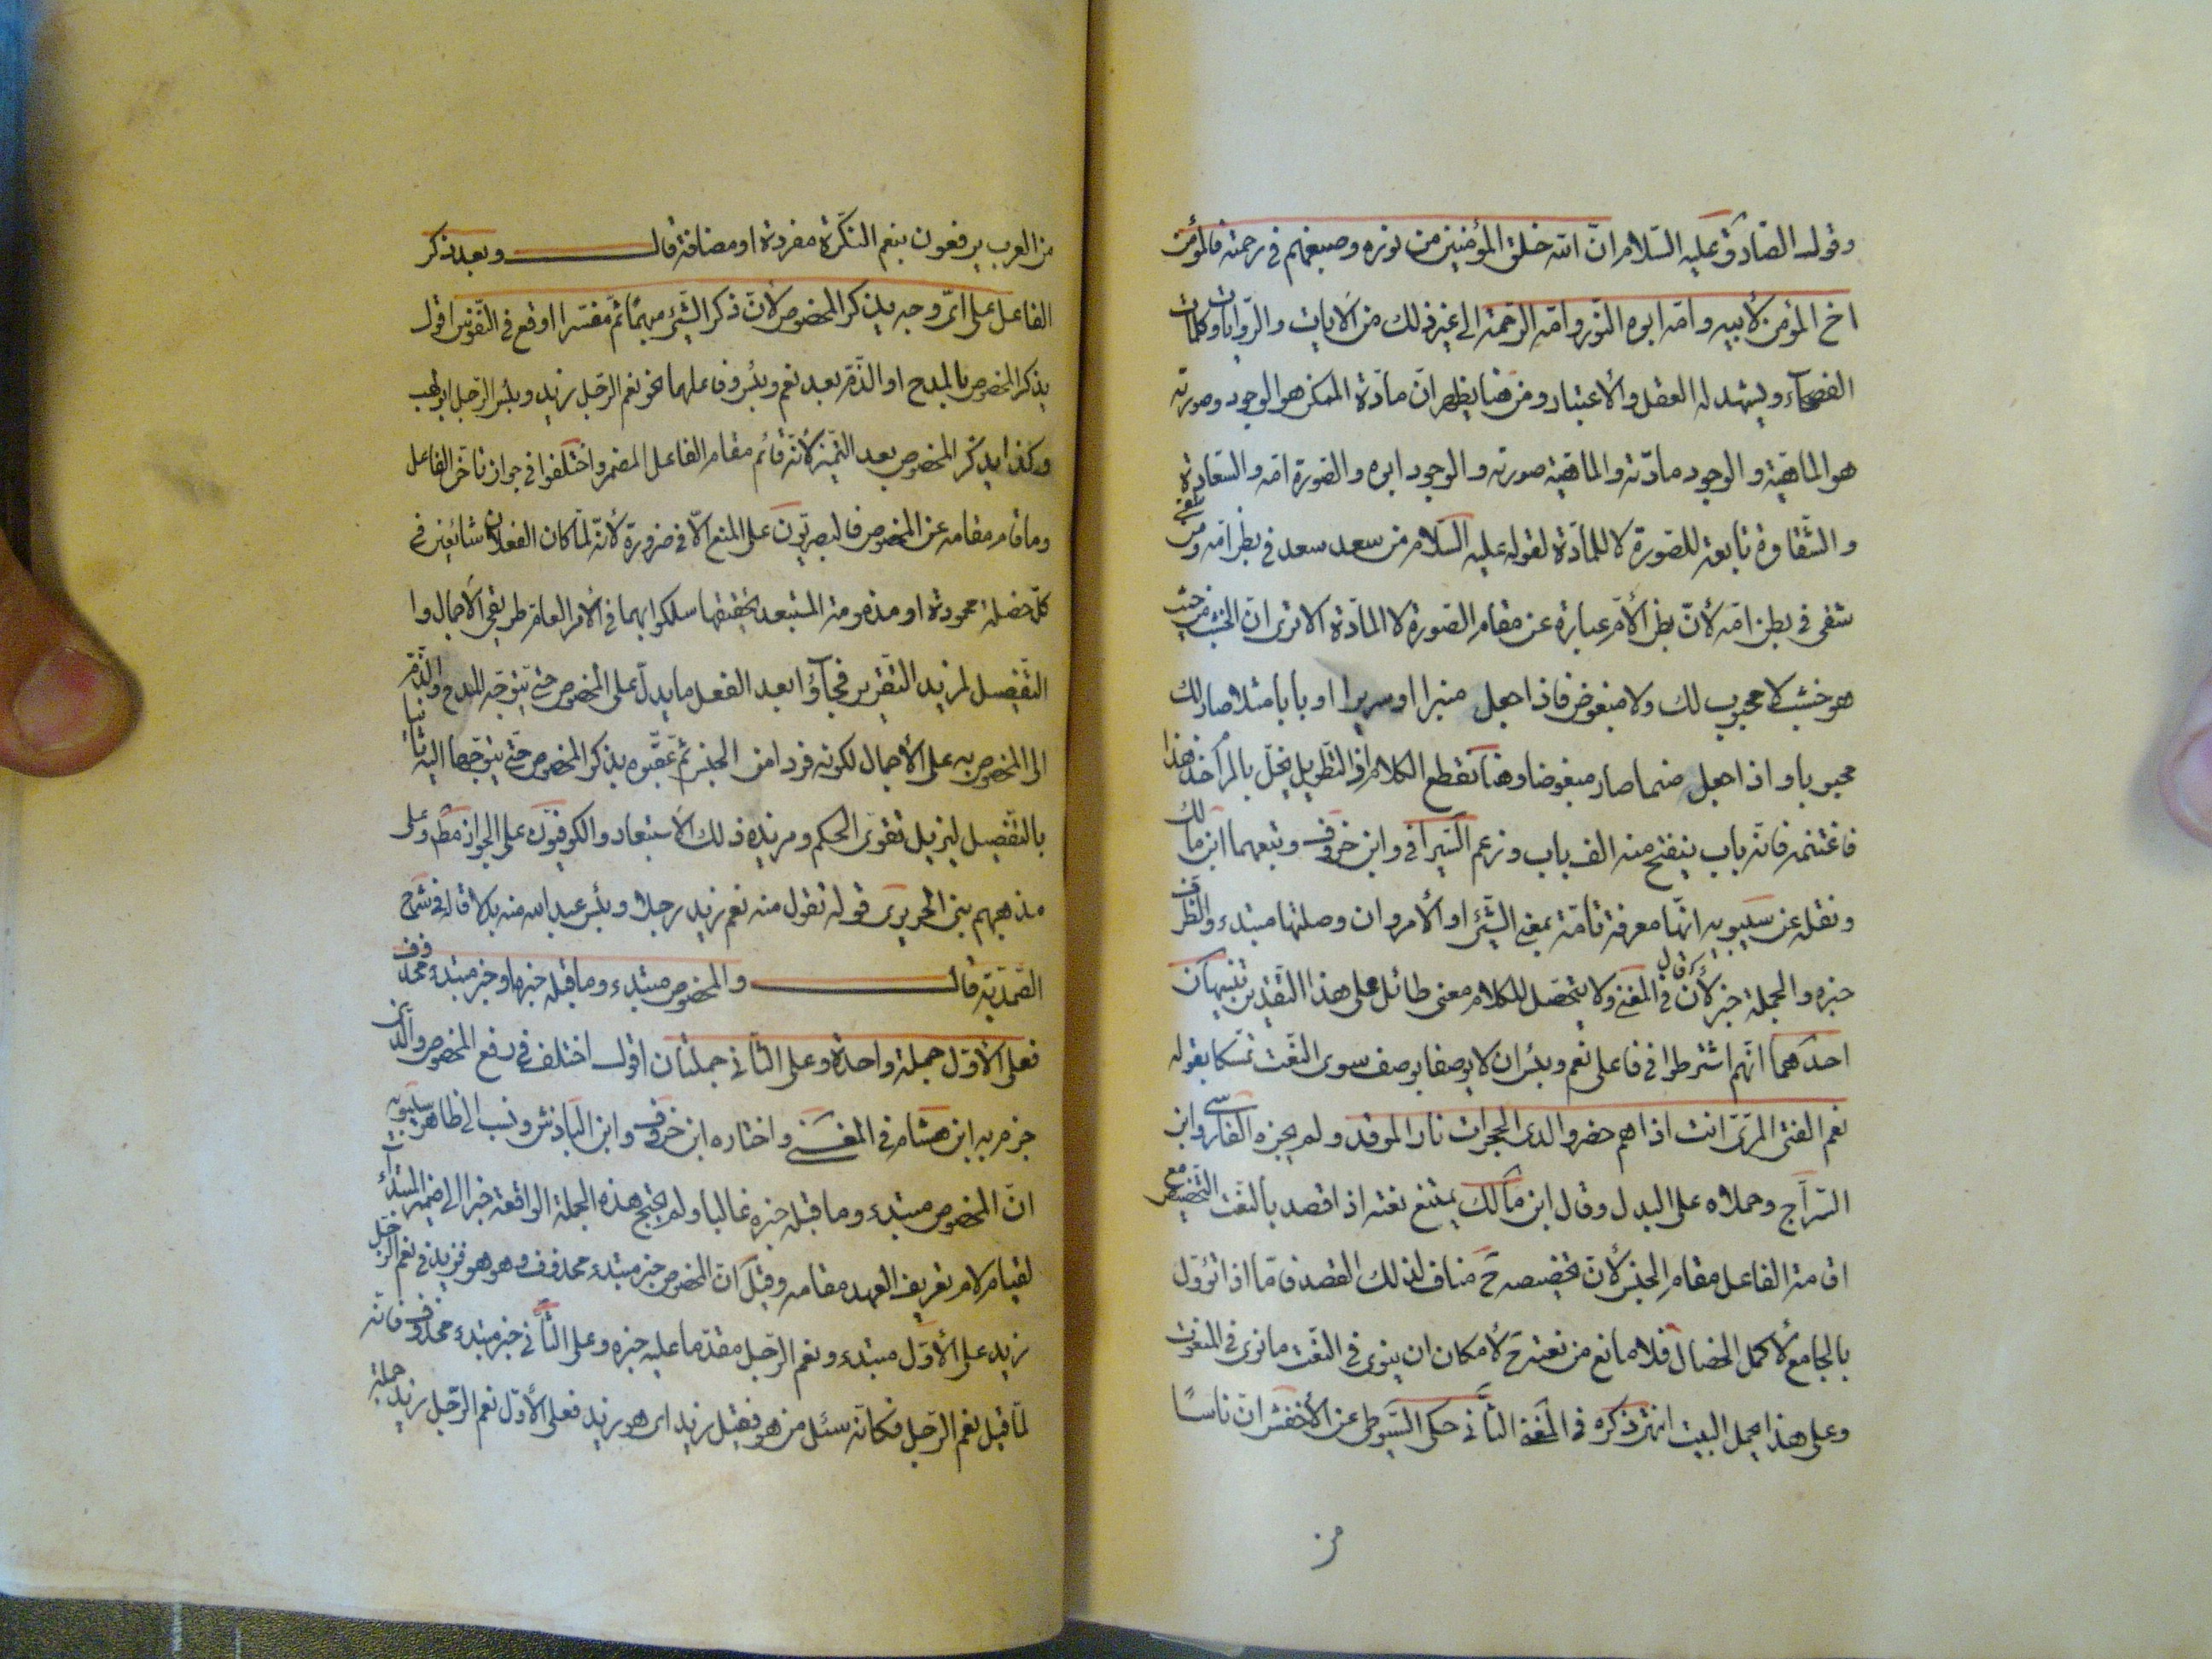 وقول الصّادق عليه السّلام انّ الله خلق المؤمنين من نوره وصبغهم فى رحمته فالمؤمن
اخ المؤمن لأبيه وامّه ابوه النّور وامّه الرّحمة الى غير ذلك من الآيات والرّوايات وكلمات
الفصحآء ويشهد له العقل والأعتبار ومن هنا يظهر انّ مادّة الممكن هو الوجود وصورته
هو الماهيّة والوجود مادّته والماهيّة صورته والوجود ابوه والصّورة امّه والسّعادة
والشّقاوة تابعة للصّورة لا للمادّة لقوله عليه السّلام من سعد سعد فى بطن امّه ومن شقى
شقى فى بطن امّه لأنّ بطن الأمّ عبارة عن مقام الصّورة لا المادّة الا ترى انّ الخشب من حيث
هو خشب لا محبوب لك ولا مبغوض فاذا جعل منبرا او سريرا او بابا مثلا صار لك
محبوبا واذا جعل صنما صار مبغوضا وهنا نقطع الكلام اذ التّطويل يخلّ بالمرام خذ هذا
فاغتنمه فانّه باب ينفتح منه الف باب وزعم السّيرافى وابن خروف وتبعهما ابن مالك
ونقله عن سيبويه انّها معرفة تامّة بمعنى الشّئ او الأمر وان وصلتها مبتدء والظّرف
خبره والجملة خبر لأنّ قال فى المغنى ولا يتحصّل للكلام معنى طائل على هذا التّقدير تنبيهان
احدهما انّهم اشترطوا فى فاعلى نعم وبئس ان لا يوصفا بوصف سوى النّعت تمسّكا بقوله
نعم الفتى المرّىّ انت اذا هم حضروا لدى الحجرات نار الموقد ولم يجزه الفارسى وابن
السّرّاج وحملاه على البدل وقال ابن مالك يمتنع نعته اذا قصد بالنّعت التّخصيص مع
اقامة الفاعل مقام الجنس لأنّ تخصيصه ح مناف لذلك القصد فامّا اذا تؤوّل
بالجامع لأكمل الخصال فلا مانع من نعته ح لأمكان ان ينوى فى النّعت مانوى فى المنعوت
وعلى هذا يحمل البيت انتهى ذكره فى المغنى الثّانى حكى السّيوطى عن الأخفش انّ ناسًا
من
من العرب يرفعون بنعم النّكرة مفردة او مضافة قال وبعد ذكر
الفاعل على اىّ وجه يذكر المخصوص لأنّ ذكر الشّئ مبهمًا ثمّ مفسّرا اوقع فى النّفوس اقول
يذكر المخصوص بالمدح او الذّمّ بعد نعم وبئس وفاعلهما نحو نعم الرّجل زيد وبئس الرّجل ابو لهب
وكذا يذكر المخصوص بعد التّميز لأنّه قائم مقام الفاعل المضمر واختلفوا فى جواز تاخّر الفاعل
وما قام مقامه عن المخصوص فالبصريّون على المنع الّا فى ضرورة لأنّه لمّا كان الفعلان شائعين فى
كلّ خصلة محمودة او مذمومة المستبعد تحقّقها سلكوا بهما فى الأمر العامّ طريقى الأجمال وا
التّفصيل لمزيد التّقرير فجآؤا بعد الفعل ما يدلّ على المخصوص حتّى يتوجّه المدح والذّمّ
الى المخصوص به على الأجمال لكونه فردا من الجنس ثمّ عقّبوه بذكر المخصوص حتّى يتوجّها اليه ثانيا
بالتّفصيل ليزيل تقوى الحكم ومزيده ذلك الأستبعاد والكوفيّون على الجواز مط وعلى
مذهبهم بنى الحريرى قوله تقول منه نعم زيد رجلا وبئس عبد الله منه بدلا قاله فى شرح
الصّمديّة قال والمخصوص مبتدء وما قبله خبرها وخبر مبتدء محذوف
فعلى الأوّل جملة واحدة وعلى الثّانى جملتان اقول اختلف فى رفع المخصوص والّذى
جزم به ابن هشام فى المغنى واختاره ابن خروف وابن الباذش ونسب الى ظاهر سيبويه
انّ المخصوص مبتدء وما قبله خبره غالبا ولم يحتج هذه الجملة الواقعة خبرا الى ضمير المبتدأ
لقيام لام تعريف العهد مقامه وقيل انّ المخصوص خبر مبتدء محذوف وهو هو فزيد فى نعم الرّجل
زيد على الأوّل مبتدء ونعم الرّجل مقدّما عليه خبره وعلى الثّانى خبر مبتدء محذوف فانّه
لمّا قيل نعم الرّجل فكانّه سئل من هو فقيل زيد اى هو زيد فعلى الأوّل نعم الرّجل زيد جملة